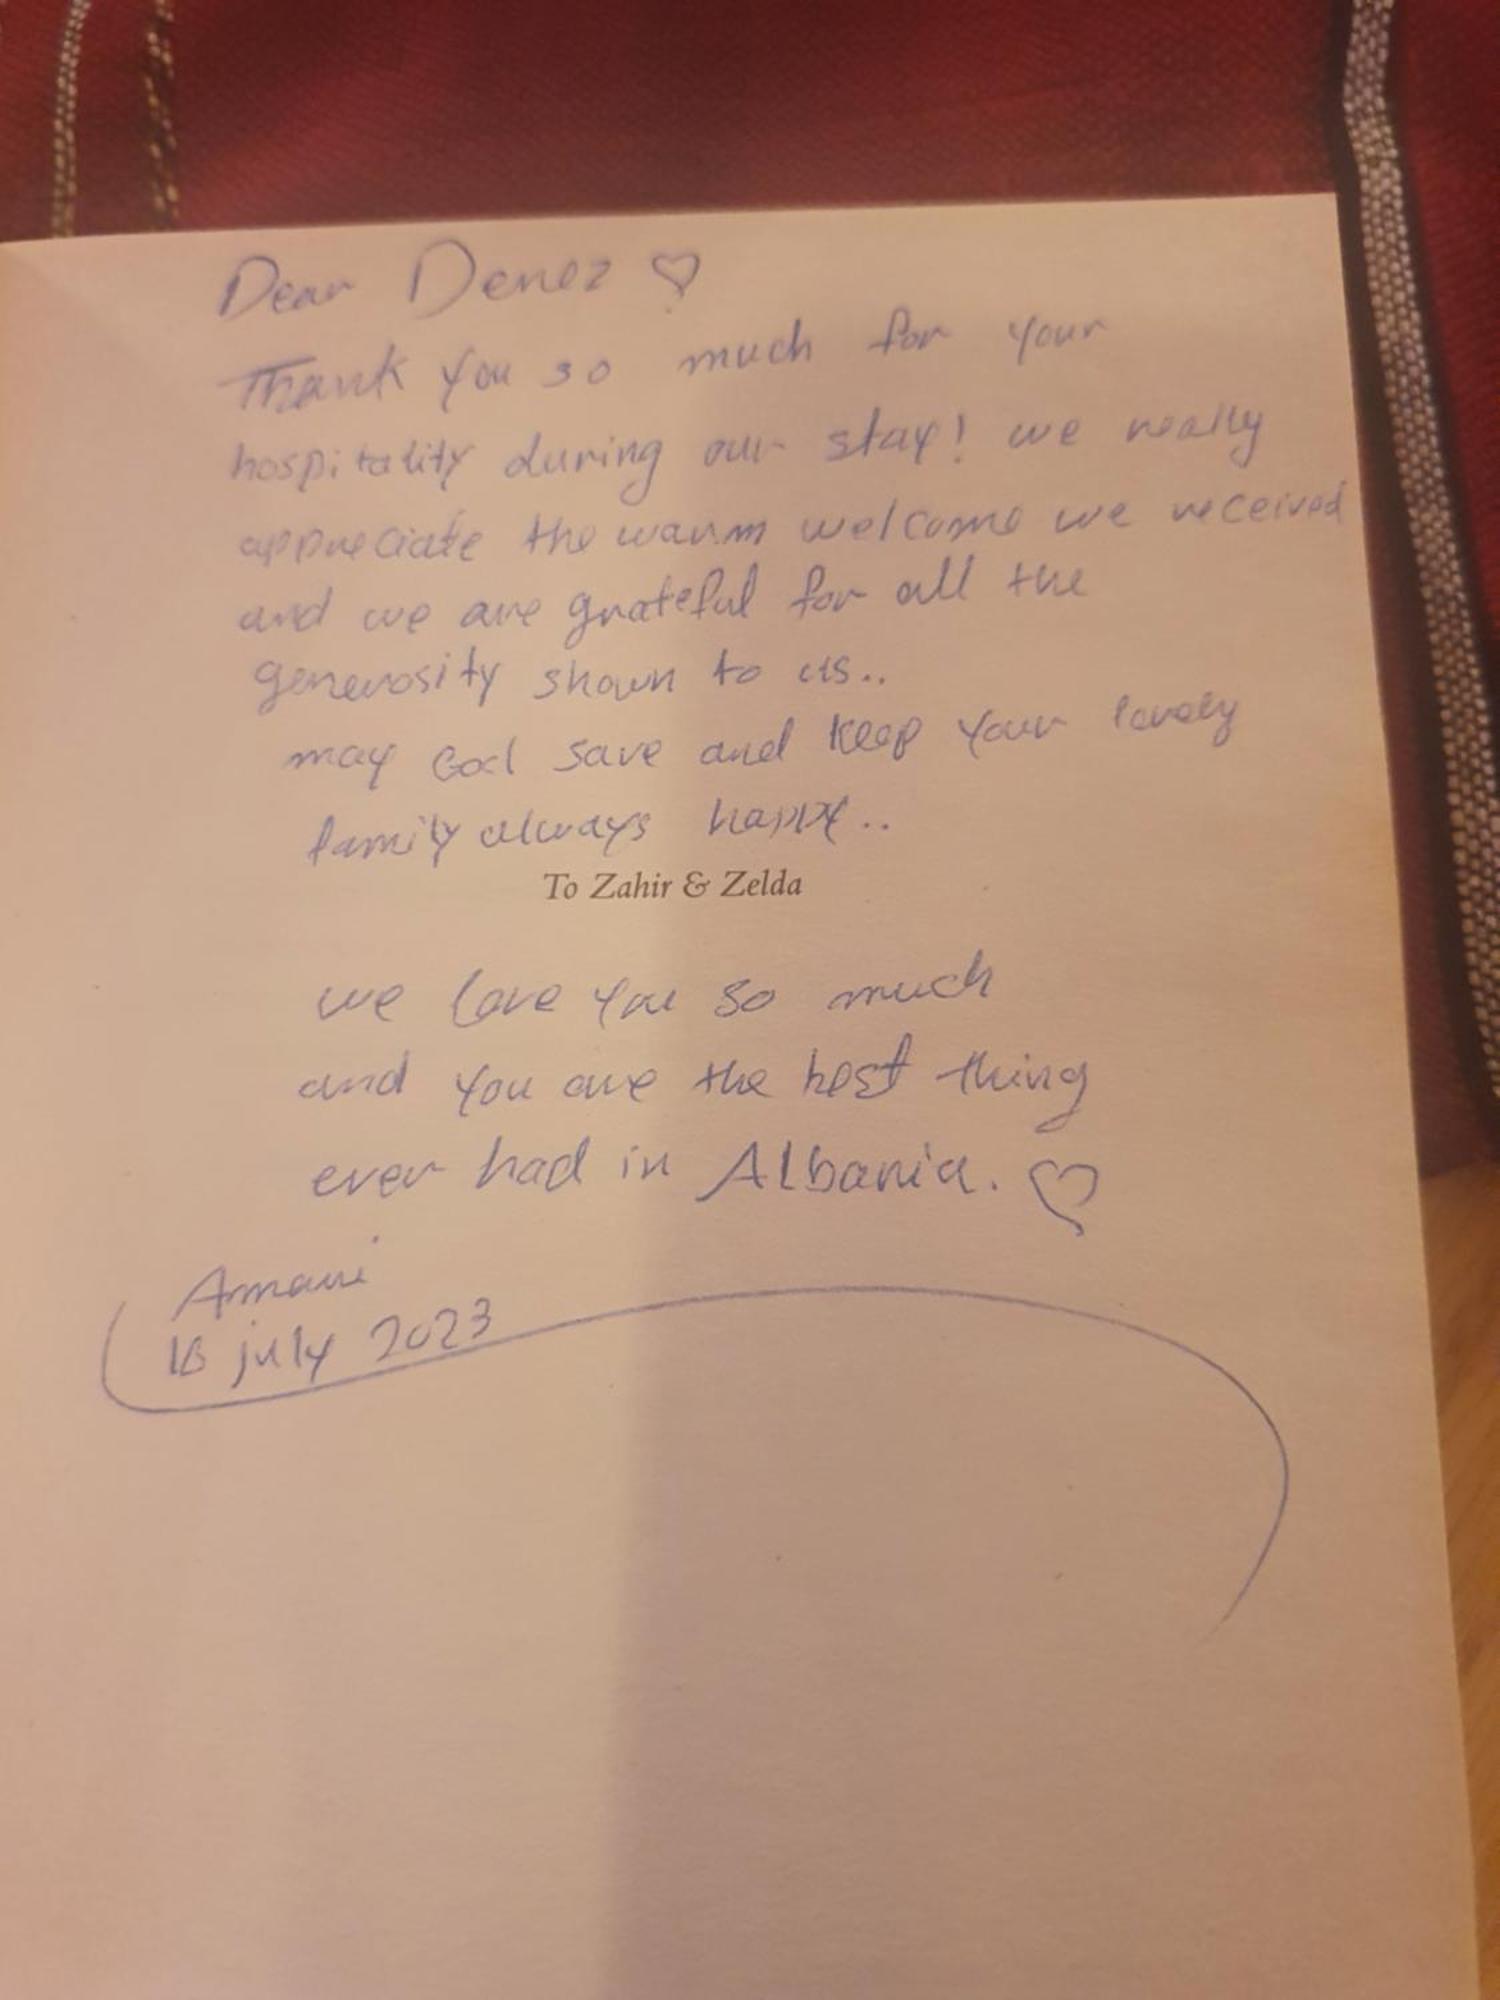 Dear Denez ♡
Thank you so much for your
hospitality during our stay! we really
appreciate the warm welcome we received
and we are grateful for all the
generosity shown to us..
may God save and keep your lovely
family always happy..
To Zahir & Zelda
we love you so much
and you are the best thing
ever had in Albania. ♡
Amani
18 july 2023